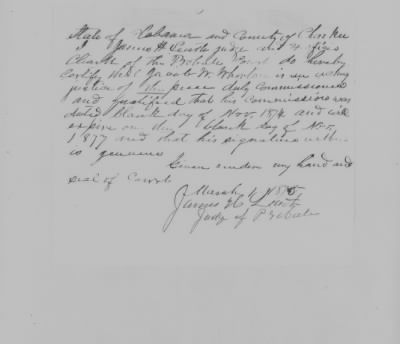 State of Alabama and County of Cherokee
I James H. Lewis judge and
Clerk of the Probate Court do hereby
certify that Jacob W. Wharton is an acting
justice of the peace duly commissioned
and qualified that his commission was
dated blank day of Nov. 1874 and will
expire on the blank day of Nov.
1877 and that his signature
is genuine
Given under my hand and
seal of
March 1875
James H.
Judge of Probate